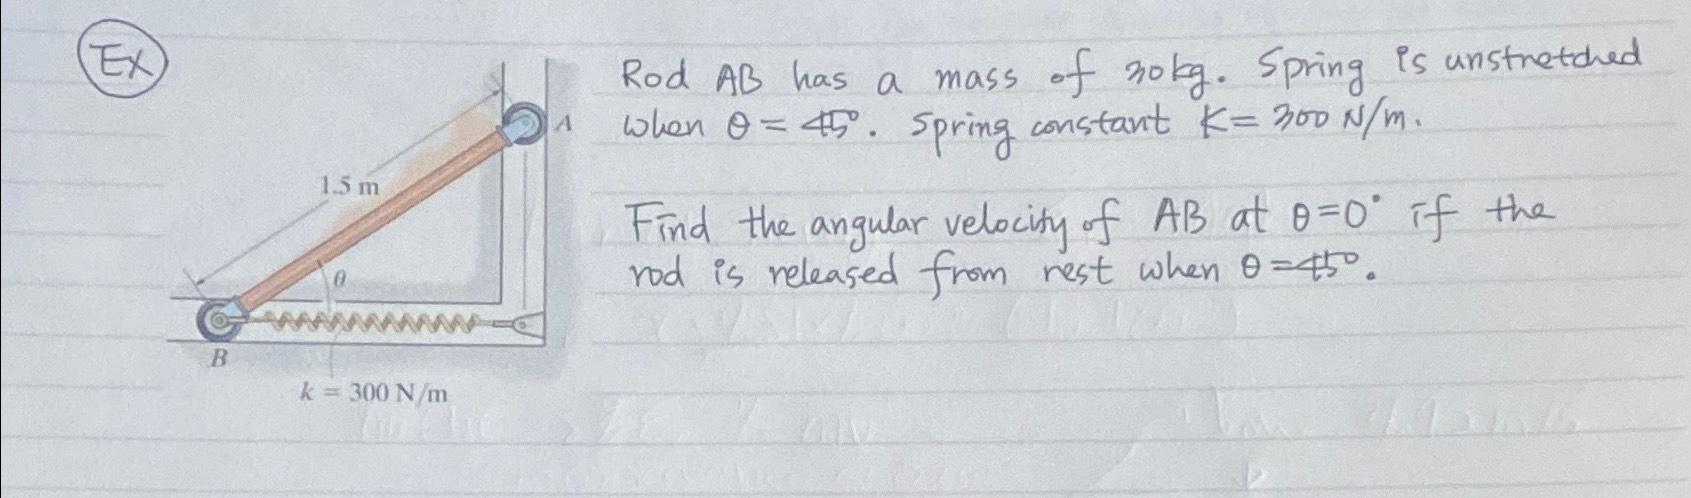 Ex
Rod AB has a mass of 30kg. Spring is unstretched
when θ = 45°. Spring constant K = 300 N/m.
A
1.5 m
Find the angular velocity of AB at θ=0° if the
rod is released from rest when θ=45°.
θ
B
k = 300 N/m